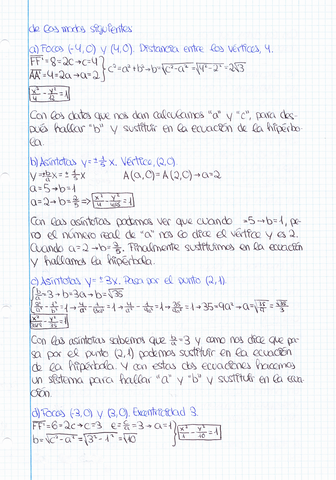 de los modos siguientes
a) Focos (-4,0) y (4,0). Distancia entre los vértices, 4.
FF'=8=2c→c=4
AA'=4=2a→a=2 } c²=a²+b²→b=√c²-a²=√4²-2²=2√3
x²/4 - y²/12 = 1
Con los datos que nos dan calculamos "a" y "c", para des-
pués hallar "b" y sustituir en la ecuación de la hipérbo-
la.
b) Asíntotas y=±1/5x. Vértice, (2,0).
y=±b/a x=±1/5x A(a,0)=A(2,0)→a=2
a=5→b=1
a=2→b=2/5 ⇒
Con las asíntotas podemos ver que cuando a=5→b=1, pe-
ro el número real de "a" nos lo dice el vértice y es 2.
Cuando a=2→b=2/5. Finalmente sustituimos en la ecuación
y hallamos la hipérbola.
c) Asíntotas y=±3x. Pasa por el punto (2,1).
b/a=3→b=3a→b=√35
→35=9a²→a=
Con las asíntotas sabemos que b/a=3 y como nos dice que pa-
sa por el punto (2,1) podemos sustituir en la ecuación
de la hipérbola. Y con estas dos ecuaciones hacemos
un sistema para hallar "a" y "b" y sustituir en la ecua-
ción.
d) Focos (-3,0) y (3,0). Excentricidad 3.
FF'=6=2c→c=3 e=c/a=3→a=1
b=√c²-a²=√3²-1²=√10 } x²/1 - y²/10 = 1